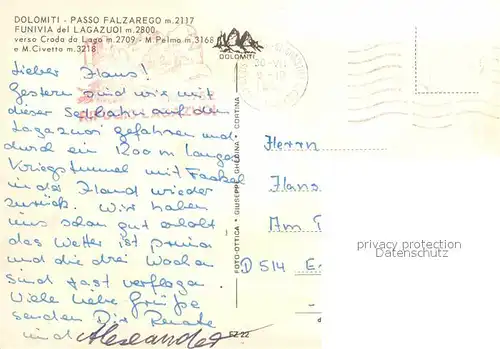 DOLOMITI - PASSO FALZAREGO m.2117
FUNIVIA del LAGAZUOI m.2800
verso Croda da Lago m.2709 - M Pelmo m.3168
e M.Civetta m.3218
DOLOMITI
Lieber Hans!
Gestern sind wir mit
dieser Seilbahn auf den
Lagazuoi gefahren und
durch ein 1200 m langen
Kriegstunnel mit Fackel
in der Hand wieder
zurück. Wir haben
uns schon gut erholt
das Wetter ist prima
und die drei Wochen
sind fast verflogen
Viele liebe Grüße
senden Dir Renate
und Alexander
FOTO-OTTICA · GIUSEPPE GHEDINA · CORTINA
EZ 22
Herrn
Hans
Am
D 514
privacy protection
Datenschutz